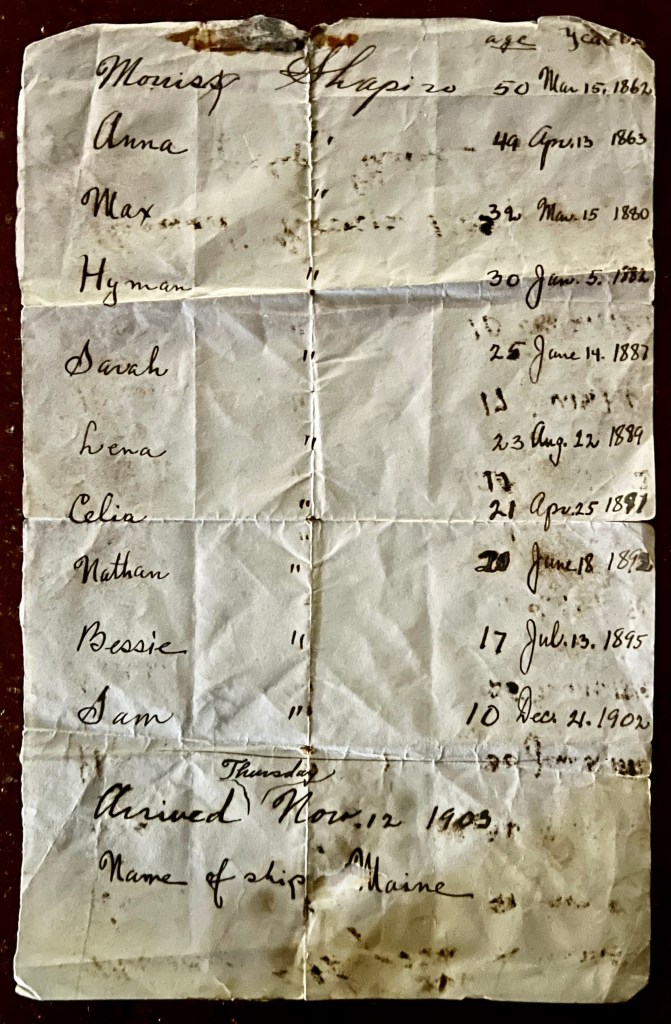 age years
Morris Shapiro 50 Mar 15. 1862
Anna " 49 Apr. 13 1863
Max " 32 Mar. 15 1880
Hyman " 30 Jan. 5. 1882
Sarah " 25 June 14. 1887
Lena " 23 Aug. 22 1889
Celia " 21 Apr. 25 1891
Nathan " 20 June 18 1892
Bessie " 17 Jul. 13. 1895
Sam " 10 Dec. 21. 1902
Thursday
Arrived Nov. 12 1903
Name of ship Maine